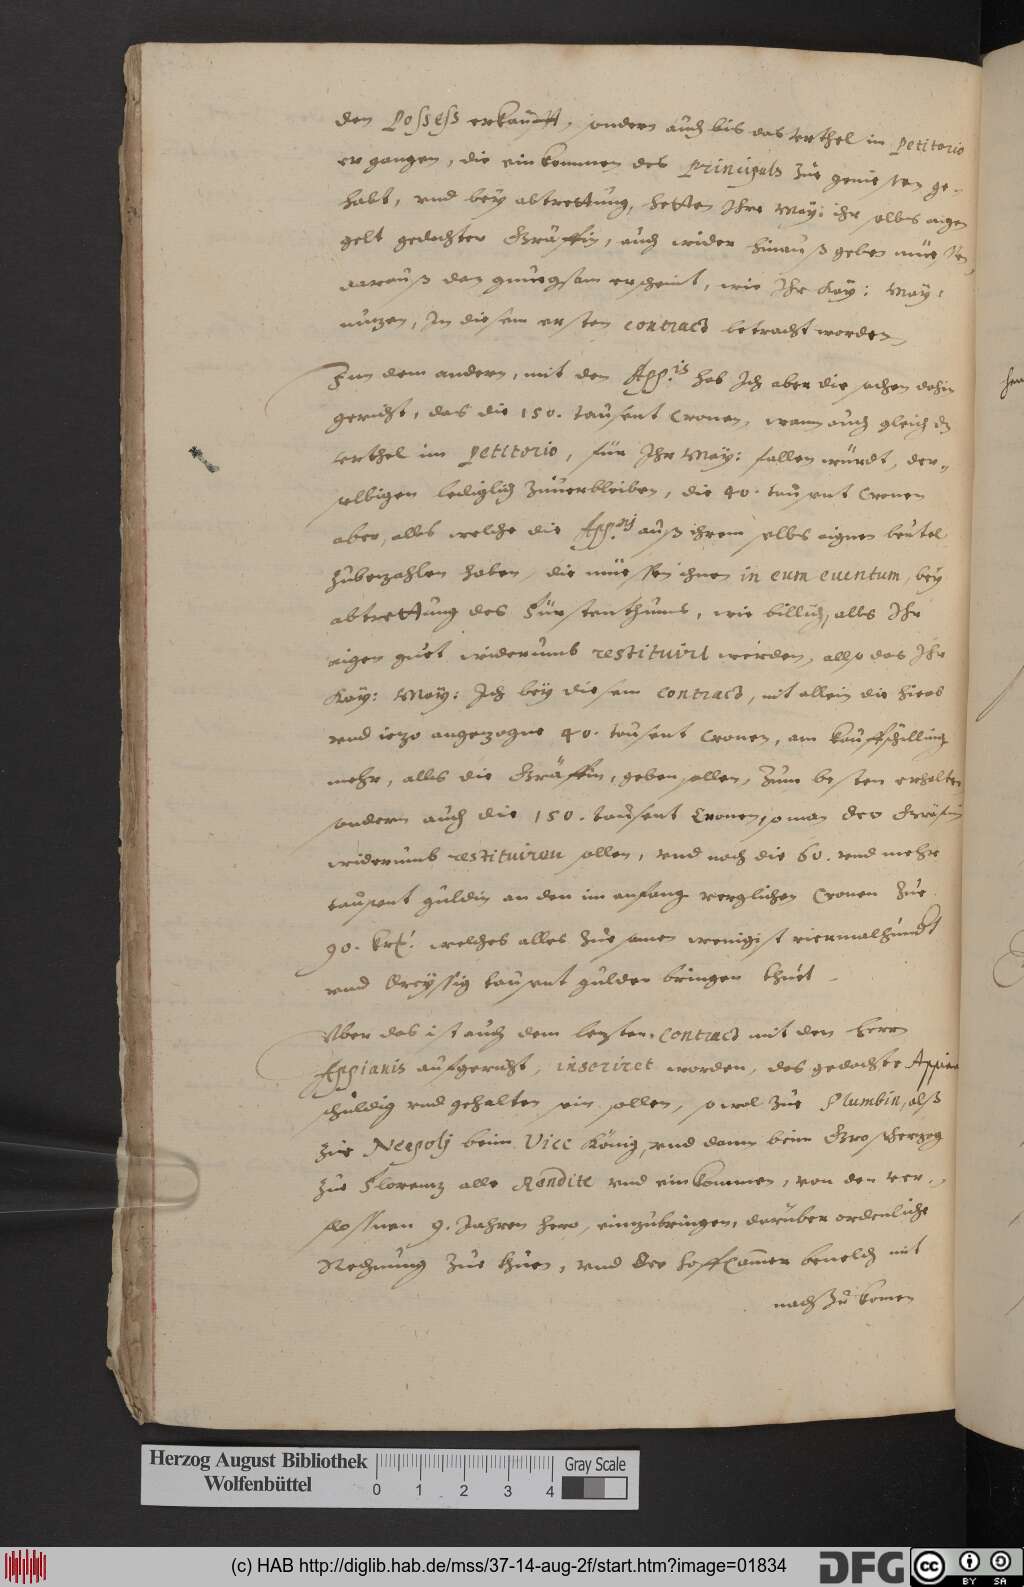 den Possess erkandt, sondern auch bis das Urthel in Petitorio
ergangen, die einkommen des Principals zue geniesen ge-
habt, und bey abtrettung, hetten Ihr May: ihr selbs aigen
gelt gedachter Gräffin, auch wider hinauß geben müessen,
darauß dan gnuegsam erscheint, wie Ihr Kay: May:
nuzen, In diesem ersten contract betracht worden
Zum dem andern, mit den App:is hab Ich aber die sachen dahin
gericht, das die 150. tausent Cronen, wann auch gleich dz
Urthel im Petitorio, für Ihr May: fallen würdt, der-
selbigen lediglich zuuerbleiben, die 40. tausent Cronen
aber, alls welche die App:nj auß ihrem selbs aignen beutel
zubezahlen haben, die müessen ihnen in eum euentum, bey
abtrettung des Fürstenthumbs, wie billich, alls Ihr
aigen guet widerumb restituirt werden, also das Ihr
Kay: May: Ich bey diesem contract, nit allein die hieob
und iezo angezogne 40. tausent Cronen, am kauffschilling
mehr, alls die Gräffin, geben sollen, zum besten erhalten
sondern auch die 150. tausent Cronen, so man der Gräffin
widerumb restituiren sollen, und noch die 60. und mehr
tausent guldin an den im anfang verglichen Cronen zue
90. krz. welches alles zue samen wenigist viermalhundt
und dreyssig tausent gulden bringen thuet
Über das ist auch dem lezten Contract mit den Herrn
Appianis aufgericht, inseriret worden, das gedachte Appian
schuldig und gehalten sein sollen, sowol zue Plumbin, alß
zue Neapolj beim Vice König, und dann beim Grosherzog
zue Florenz alle Rendite und einkommen, von den ver-
flossnen 9. Jahren hero, einzubringen, darüber ordenliche
Rechnung zue thuen, und der hoffCamer beuelch mit
nachzukomen
Herzog August Bibliothek
Wolfenbüttel
0 1 2 3 4
Gray Scale
(c) HAB http://diglib.hab.de/mss/37-14-aug-2f/start.htm?image=01834
DFG
cc BY SA